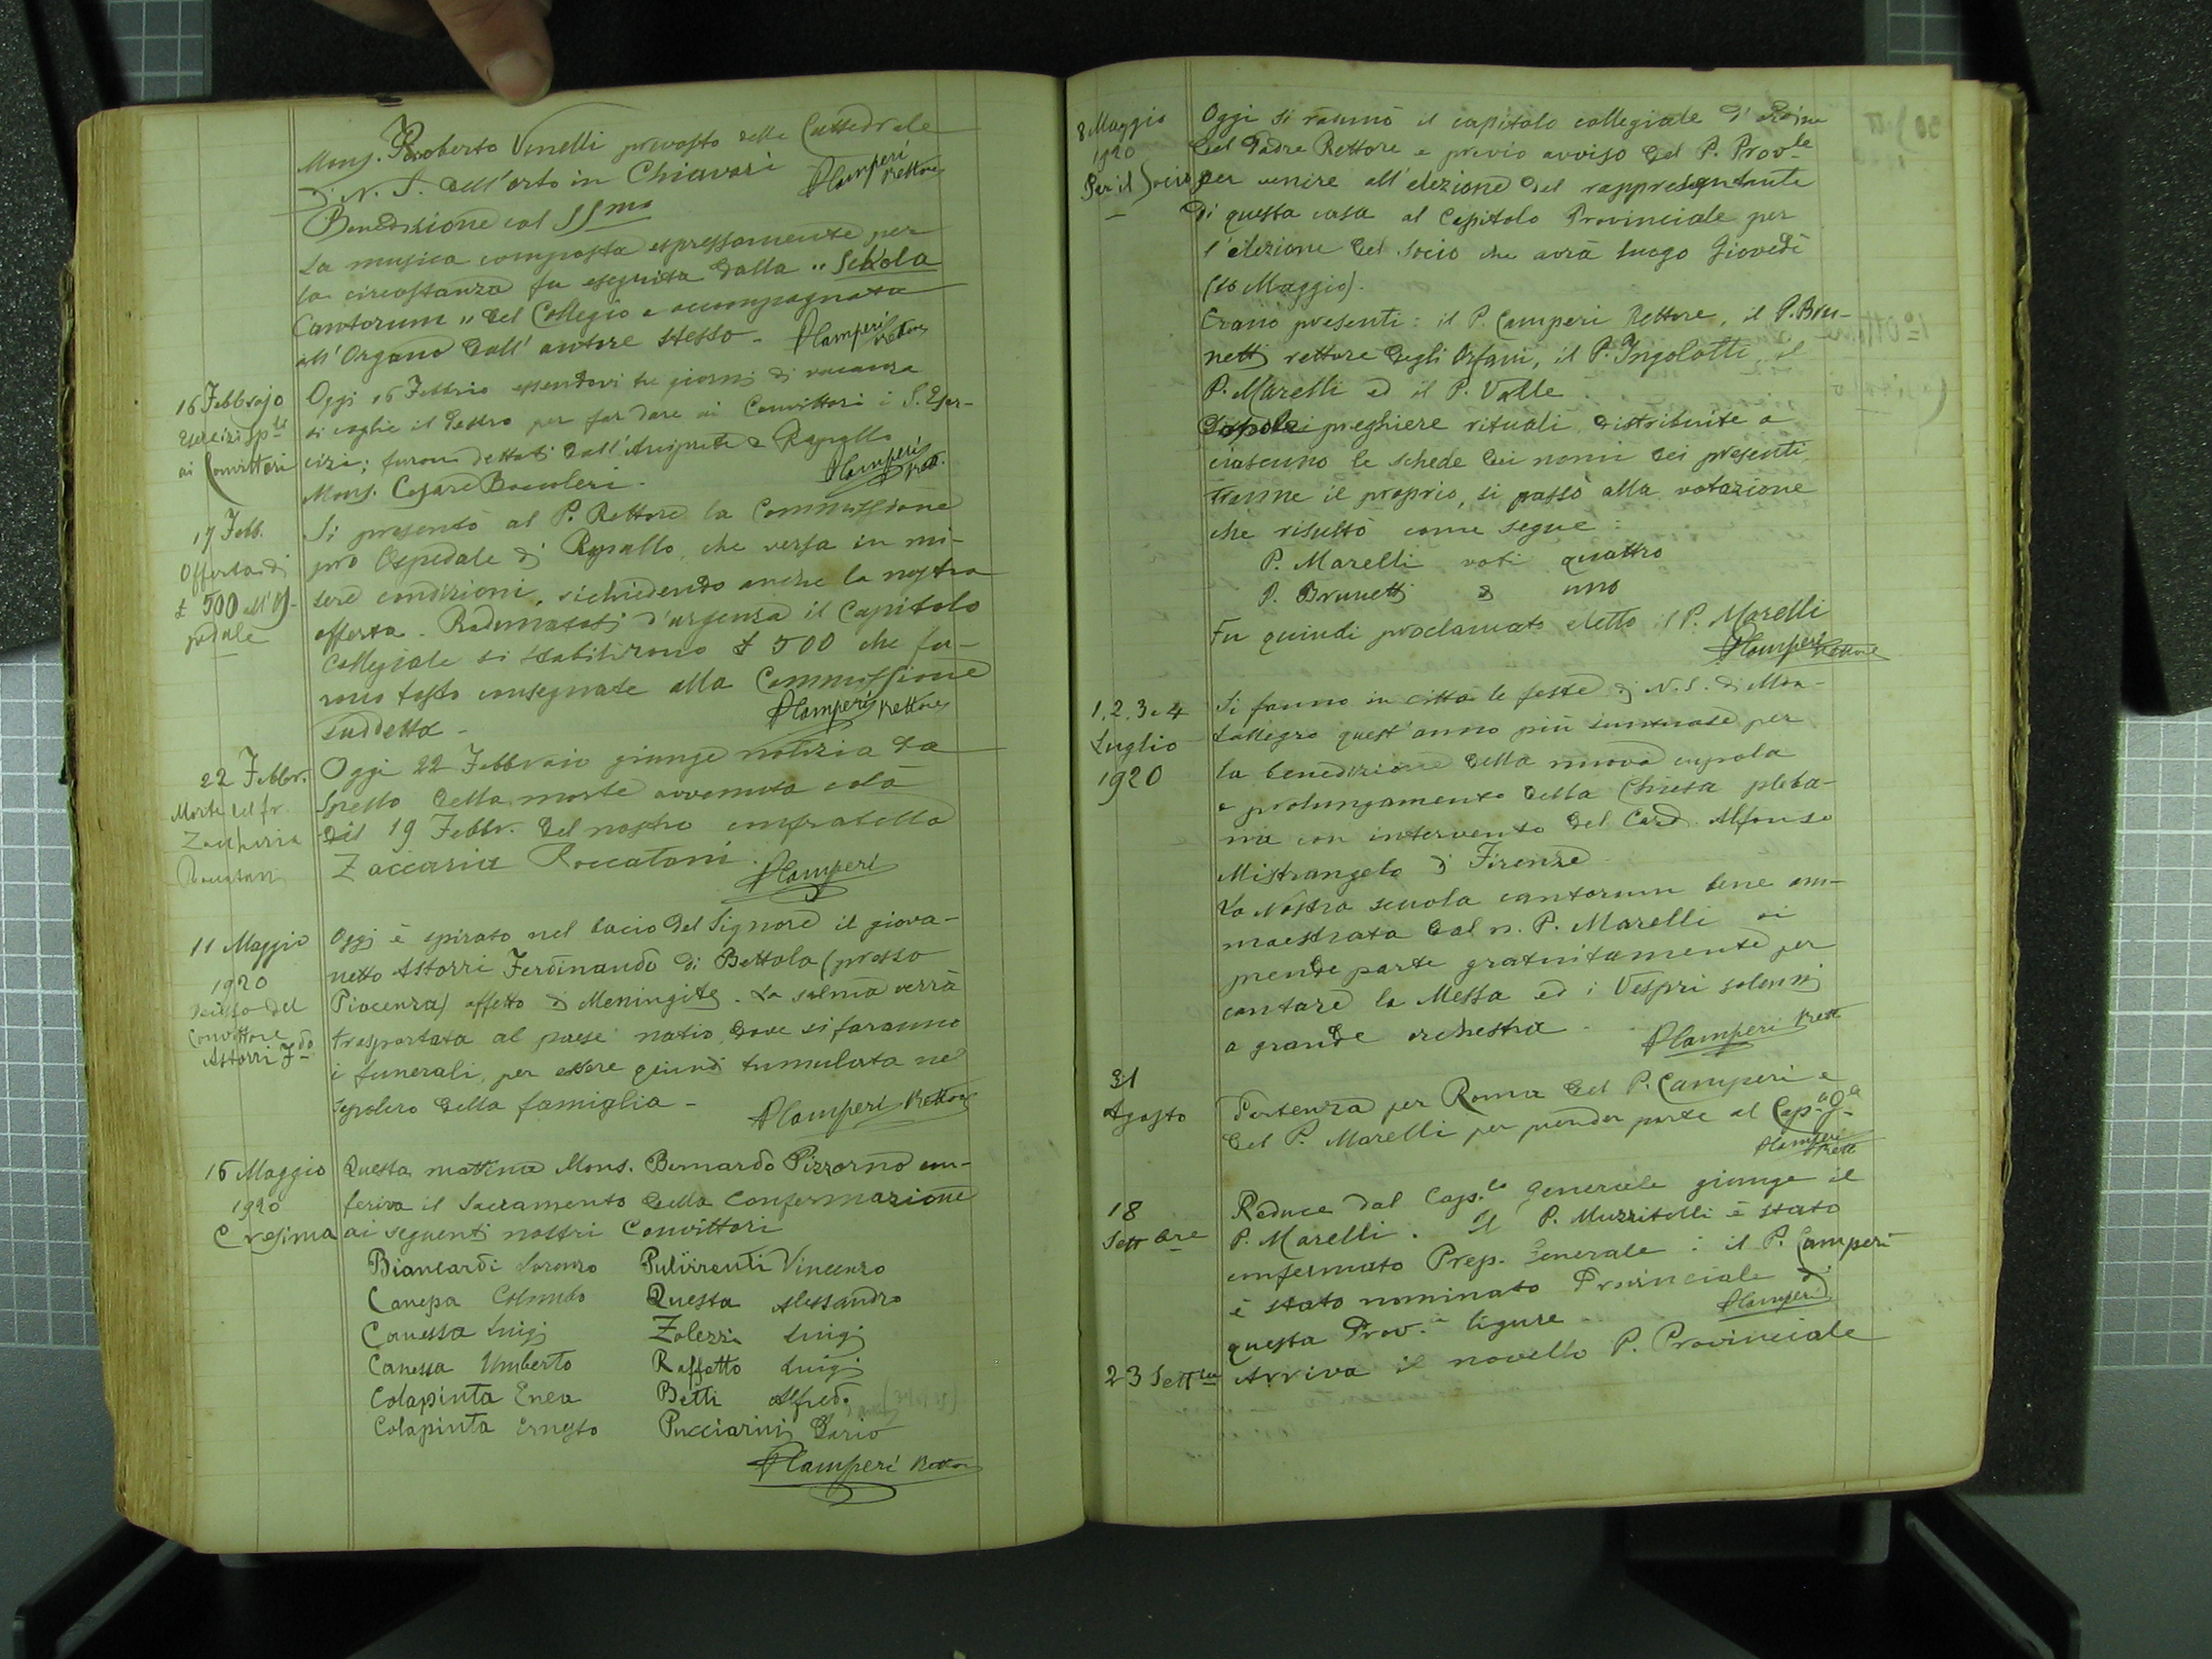 Mons. Roberto Vinelli prevosto della Cattedrale
di N. S. dell'orto in Chiavari
PCamperi
Rettore
Benedizione col SSmo
La musica composta espressamente per
la circostanza fu eseguita dalla "Schola
Cantorum" del Collegio e accompagnata
all'Organo dall'autore stesso -
PCamperi
Rettore
16 Febbrajo
Esercizi Spli
ai Convittori
Oggi 16 Febbrio essendovi tre giorni di vacanza
si coglie il destro per far dare ai Convittori i S. Eser-
cizi; furon dettati dall'Arciprete di Rapallo
Mons. Cesare Boccoleri.
PCamperi
Rett.
17 Febb.
Offerta di
£ 500 all'Os-
pedale
Si presentò al P. Rettore la Commissione
pro Ospedale di Rapallo, che versa in mi-
sere condizioni, richiedendo anche la nostra
offerta. Radunatosi d'urgenza il Capitolo
Collegiale si stabilirono £ 500 che fu-
rono tosto consegnate alla Commissione
suddetta -
PCamperi Rettore
22 Febbr.
Morte del fr.
Zaccaria
Roccatani
Oggi 22 Febbraio giunge notizia da
Spello della morte avvenuta colà
dil 19 Febbr. del nostro confratello
Zaccaria Roccatani.
PCamperi
11 Maggio
1920
Decesso del
Convittore
Astorri Fdo
Oggi è spirato nel bacio del Signore il giova-
netto Astorri Ferdinando di Bettola (presso
Piacenza) affetto di Meningite. La salma verrà
trasportata al paese natio, dove si faranno
i funerali, per essere quindi tumulata nel
sepolcro della famiglia -
PCamperi Rettore
16 Maggio
1920
Cresima
Questa mattina Mons. Bernardo Pizzorno con-
feriva il Sacramento della Confermazione
ai seguenti nostri Convittori
Biancardi Lorenzo Pulirrenti Vincenzo
Canepa Colombo Questa Alessandro
Canessa Luigi Zolezzi Luigi
Canessa Umberto Raffetto Luigi
Colapinta Enea Betti Alfredo
Colapinta Ernesto Pucciarini Dario
PCamperi Rettore
8 Maggio
1920
Per il Socio
Oggi si radunò il capitolo collegiale d'ordine
del Padre Rettore e previo avviso del P. Prov.le
per venire all'elezione del rappresentante
di questa casa al Capitolo Provinciale per
l'elezione del Socio che avrà luogo Giovedì
(10 Maggio).
Erano presenti: il P. Camperi Rettore, il P. Bru-
netti rettore degli Orfani, il P. Ingolotti, il
P. Marelli ed il P. Valle.
Dopo le preghiere rituali, distribuite a
ciascuno le schede dei nomi dei presenti,
tranne il proprio, si passò alla votazione
che risultò come segue:
P. Marelli voti quattro
P. Brunetti " uno
Fu quindi proclamato eletto il P. Marelli
PCamperi Rettore
1. 2. 3 e 4
Luglio
1920
Si fanno in città le feste di N. S. di Mon-
tallegro quest'anno più suntuose per
la benedizione della nuova cupola
e prolungamento della Chiesa pleba-
na con intervento del Card. Alfonso
Mistrangelo di Firenze.
La Nostra scuola cantorum bene am-
maestrata dal n. P. Marelli vi
prende parte gratuitamente per
cantare la Messa ed i Vespri solenni
a grande orchestra.
PCamperi Rett
31
Agosto
Partenza per Roma del P. Camperi e
del P. Marelli per prender parte al Cap.o G.e
PCamperi
Rett
18
Settbre
Reduce dal Cap.lo Generale giunge il
P. Marelli. Il P. Muzzitelli è stato
confermato Prep. Generale: il P. Camperi
è stato nominato Provinciale di
questa Prov.a ligure.
PCamperi
23 Settbre
Arriva il novello P. Provinciale